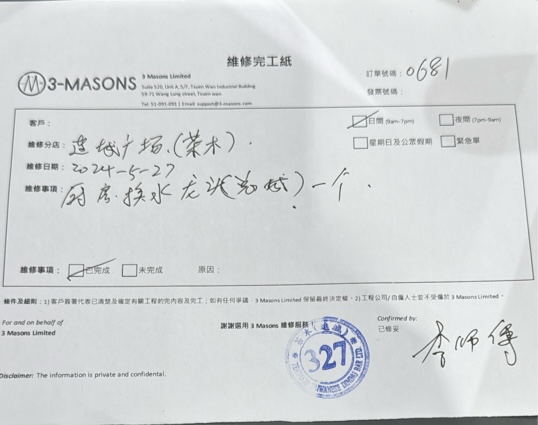 維修完工紙
3-MASONS
3 Masons Limited
Suite 520, Unit A, 5/F, Tsuen Wan Industrial Building
59-71 Wang Lung street, Tsuen wan
Tel: 51-091-091 | Email: support@3-masons.com
訂單號碼：0681
發票號碼：
客戶：
日間 (9am-7pm)
夜間 (7pm-9am)
維修分店：连城广场（荣木）.
星期日及公眾假期
緊急單
維修日期：2024-5-27
維修事項：厨房换水龙头一个.
維修事項：
已完成
未完成
原因：
條件及細則：1) 客戶簽署代表已清楚及確定有關工程的完內容及完工；如有任何爭議，3 Masons Limited 保留最終決定權。2)工程公司/自僱人士並不受僱於 3 Masons Limited。
For and on behalf of
3 Masons Limited
謝謝選用 3 Masons 維修服務
Confirmed by:
已修妥
327
李师傅
Disclaimer: The information is private and confidential.